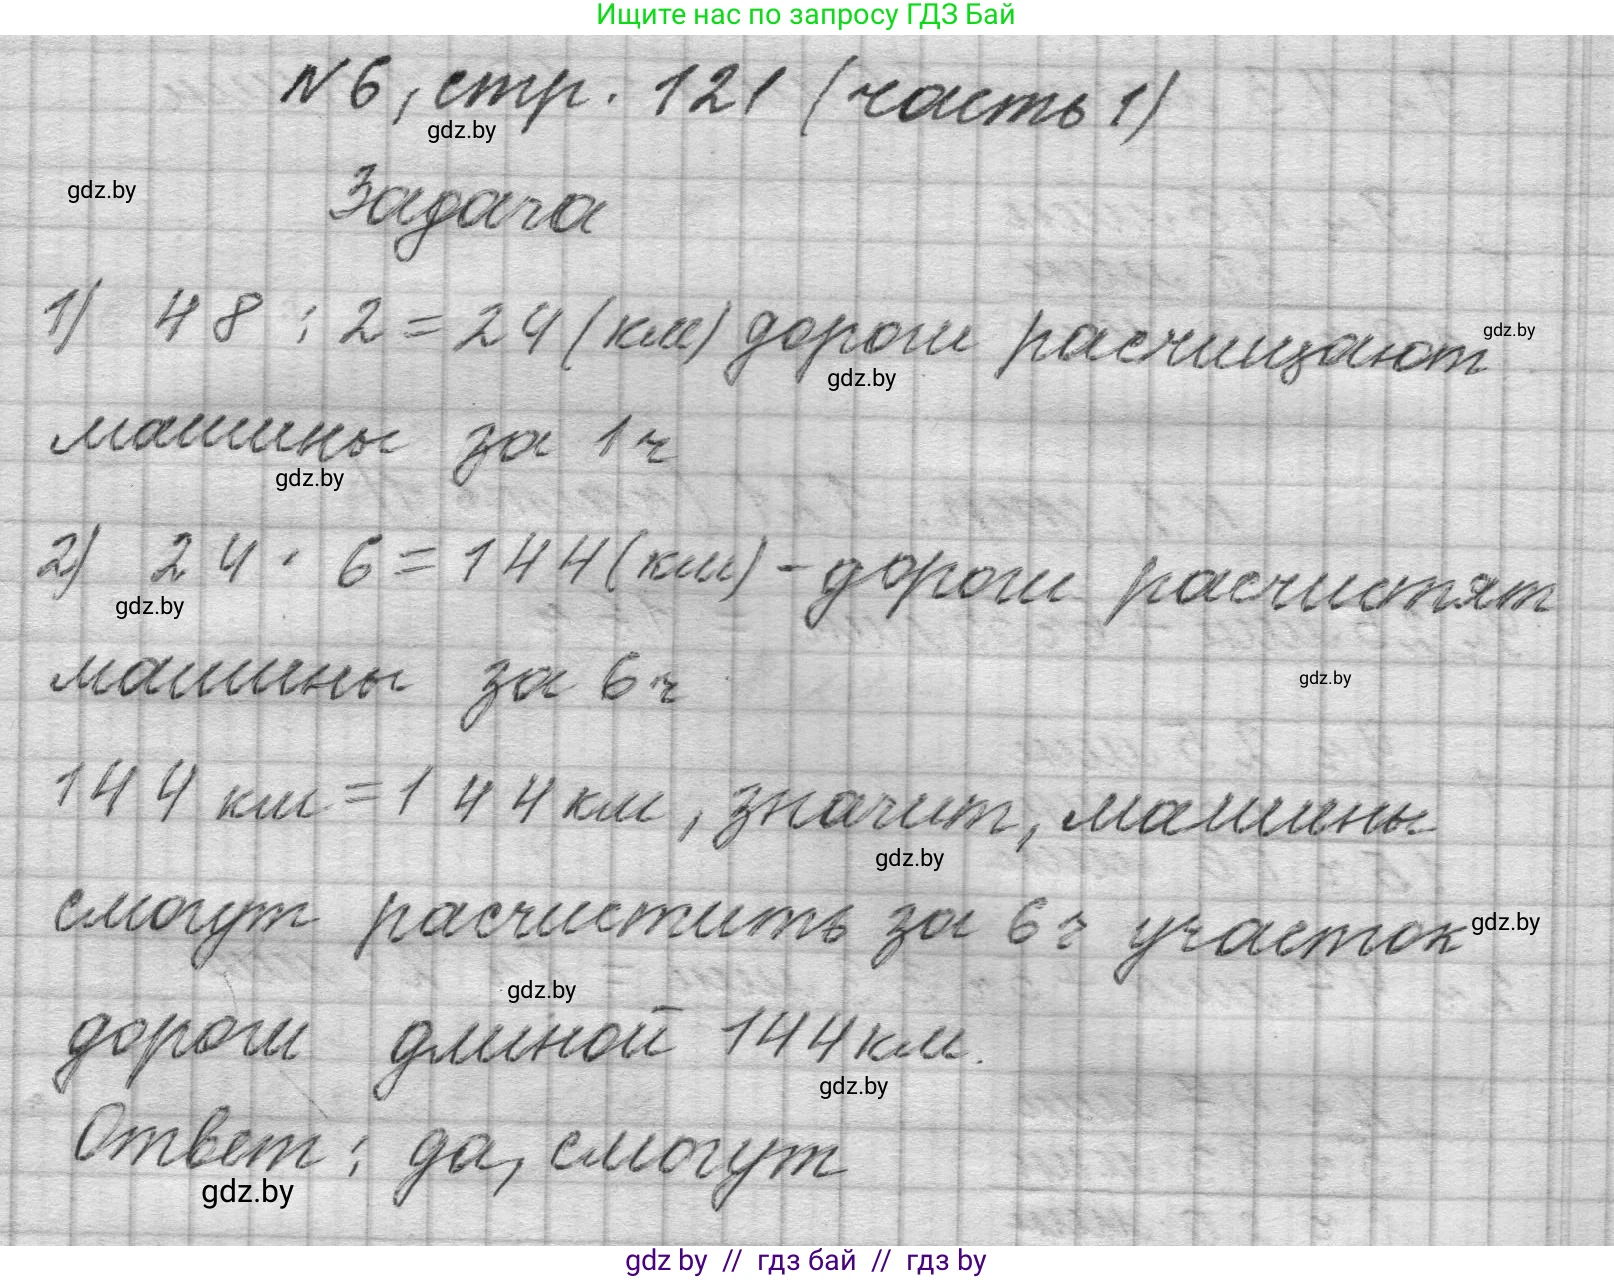 Ищите нас по запросу ГДЗ Бай
№6, стр. 121 (часть 1)
gdz.by
gdz.by
Задача
1) 48 : 2 = 24 (км) дороги расчищают
gdz.by
gdz.by
машины за 1 ч
gdz.by
2) 24 · 6 = 144 (км) - дороги расчистят
gdz.by
машины за 6 ч
gdz.by
144 км = 144 км, значит, машины
gdz.by
смогут расчистить за 6 ч участок
gdz.by
gdz.by
дороги длиной 144 км.
gdz.by
Ответ: да, смогут
gdz.by
gdz by // гдз бай // гдз by